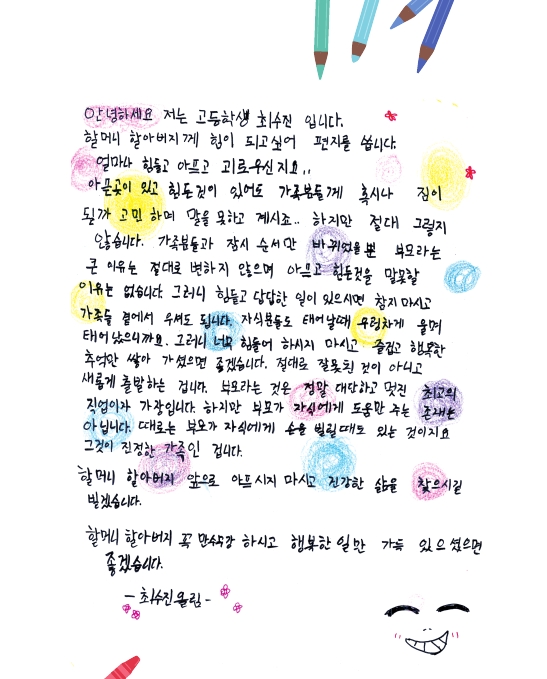 안녕하세요 저는 고등학생 최수진 입니다.
할머니 할아버지께 힘이 되고싶어 편지를 씁니다.
얼마나 힘들고 아프고 괴로우신지요..
아픈곳이 있고 힘든것이 있어도 가족분들께 혹시나 짐이
될까 고민 하며 말을 못하고 계시죠.. 하지만 절대 그렇지
않습니다. 가족분들과 잠시 순서만 바뀌었을 뿐 부모라는
큰 이유는 절대로 변하지 않으며 아프고 힘든것을 말못할
이유는 없습니다. 그러니 힘들고 답답한 일이 있으시면 참지 마시고
가족들 곁에서 우셔도 됩니다. 자식분들도 태어날때 우렁차게 울며
태어났으니까요. 그러니 너무 힘들어 하시지 마시고 즐겁고 행복한
추억만 쌓아 가셨으면 좋겠습니다. 절대로 잘못된 것이 아니고
새롭게 출발하는 겁니다. 부모라는 것은 정말 대단하고 멋진 최고의
직업이자 가장입니다. 하지만 부모가 자식에게 도움만 주는 존재는
아닙니다. 때로는 부모가 자식에게 손을 빌릴때도 있는 것이지요
그것이 진정한 가족인 겁니다.
할머니 할아버지 앞으로 아프시지 마시고 건강한 삶을 찾으시길
빌겠습니다.
할머니 할아버지 꼭 만수무강 하시고 행복한 일만 가득 있으셨으면
좋겠습니다.
- 최수진 올림 -